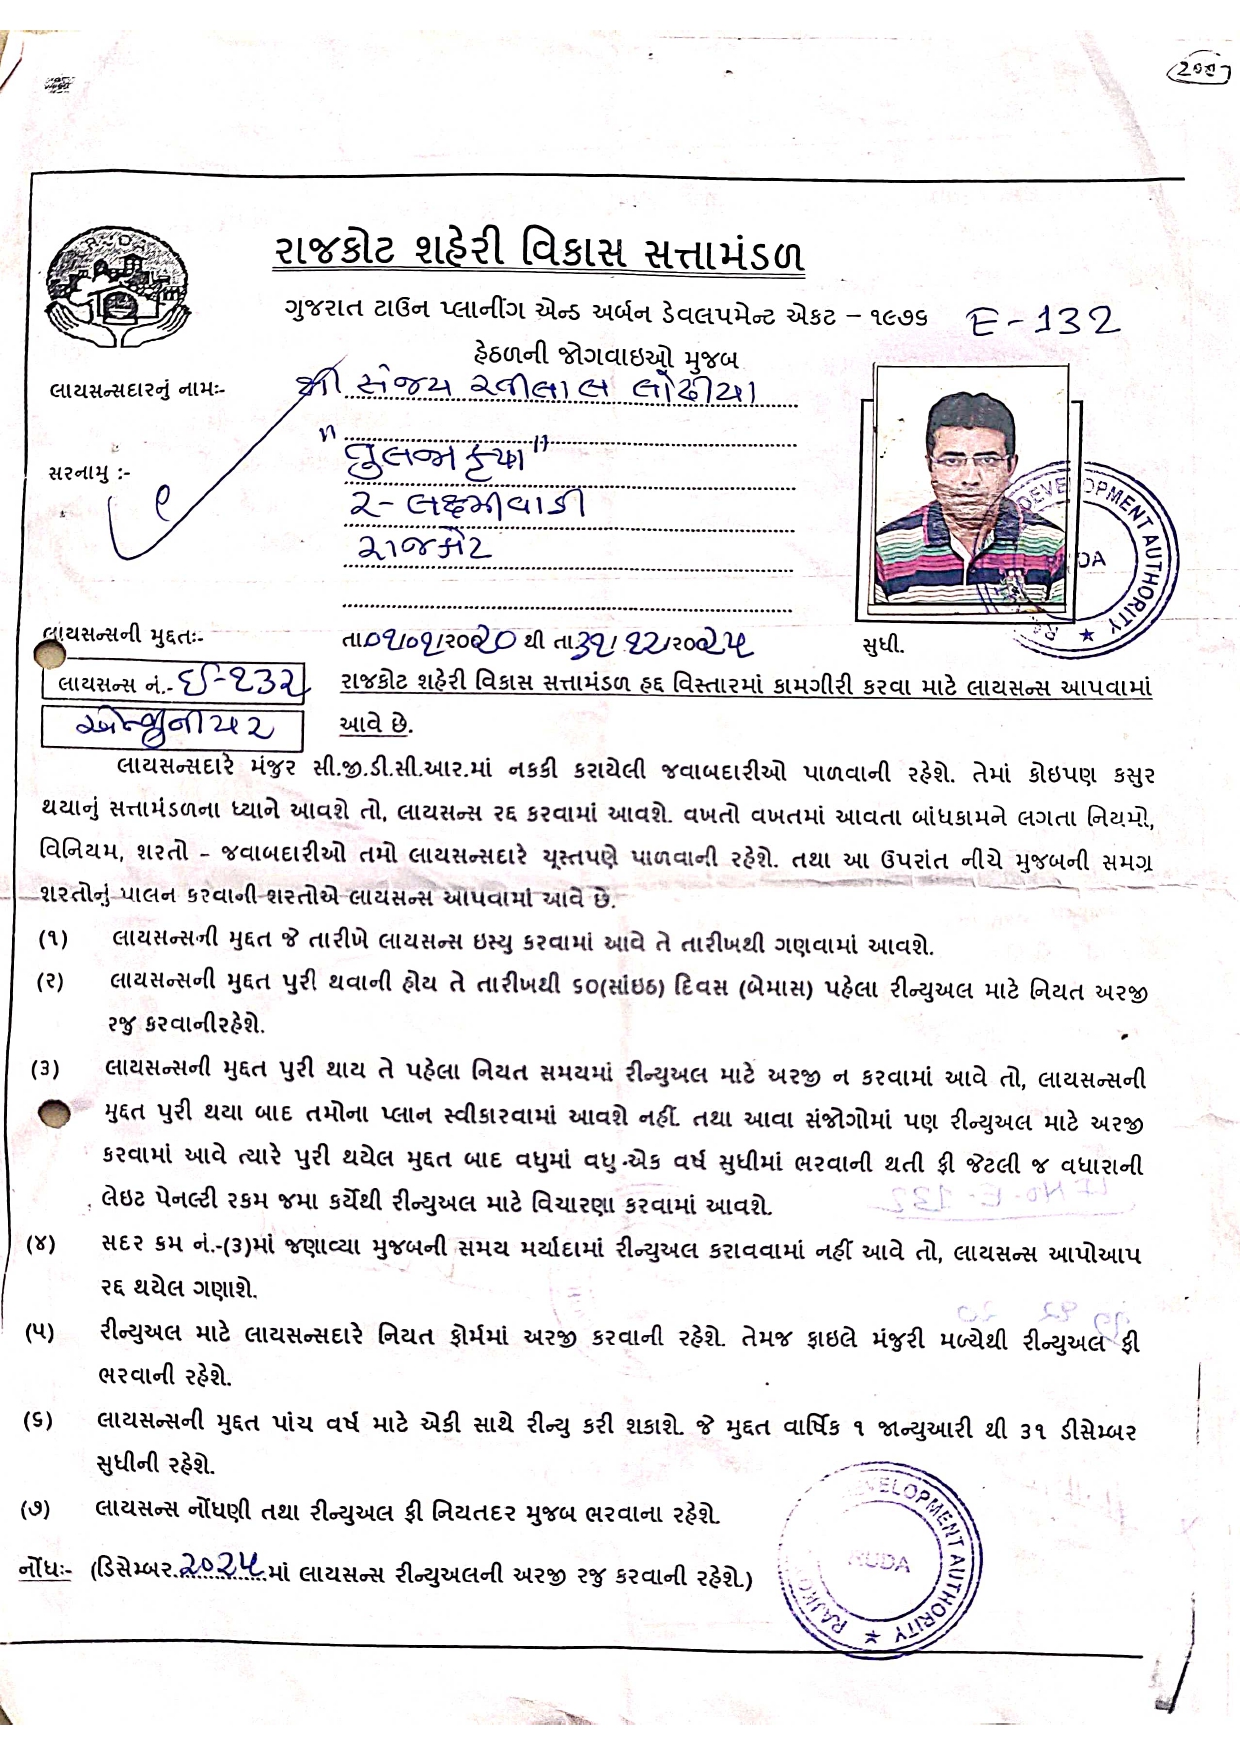 રાજકોટ શહેરી વિકાસ સત્તામંડળ
ગુજરાત ટાઉન પ્લાનીંગ એન્ડ અર્બન ડેવલપમેન્ટ એકટ – ૧૯૭૬ E-132
હેઠળની જોગવાઇઓ મુજબ
લાયસન્સદારનું નામઃ- શ્રી સંજય રતીલાલ લોઢીયા
સરનામુ :-
૨- લક્ષ્મીવાડી
રાજકોટ
DEVELOPMENT AUTHORITY
લાયસન્સની મુદ્દતઃ- તા૦૧/૦૧/૨૦૨૦ થી તા૩૧/૧૨/૨૦૨૫ સુધી.
લાયસન્સ નં.- ઈ-૧૩૨ રાજકોટ શહેરી વિકાસ સત્તામંડળ હદ્દ વિસ્તારમાં કામગીરી કરવા માટે લાયસન્સ આપવામાં
એન્જીનીયર આવે છે.
લાયસન્સદારે મંજુર સી.જી.ડી.સી.આર.માં નકકી કરાયેલી જવાબદારીઓ પાળવાની રહેશે. તેમાં કોઇપણ કસુર
થયાનું સત્તામંડળના ધ્યાને આવશે તો, લાયસન્સ રદ્દ કરવામાં આવશે. વખતો વખતમાં આવતા બાંધકામને લગતા નિયમો,
વિનિયમ, શરતો – જવાબદારીઓ તમો લાયસન્સદારે ચૂસ્તપણે પાળવાની રહેશે. તથા આ ઉપરાંત નીચે મુજબની સમગ્ર
શરતોનું પાલન કરવાની શરતોએ લાયસન્સ આપવામાં આવે છે.
(૧) લાયસન્સની મુદ્દત જે તારીખે લાયસન્સ ઇસ્યુ કરવામાં આવે તે તારીખથી ગણવામાં આવશે.
(૨) લાયસન્સની મુદ્દત પુરી થવાની હોય તે તારીખથી ૬૦(સાંઇઠ) દિવસ (બેમાસ) પહેલા રીન્યુઅલ માટે નિયત અરજી
રજુ કરવાનીરહેશે.
(૩) લાયસન્સની મુદ્દત પુરી થાય તે પહેલા નિયત સમયમાં રીન્યુઅલ માટે અરજી ન કરવામાં આવે તો, લાયસન્સની
મુદ્દત પુરી થયા બાદ તમોના પ્લાન સ્વીકારવામાં આવશે નહીં. તથા આવા સંજોગોમાં પણ રીન્યુઅલ માટે અરજી
કરવામાં આવે ત્યારે પુરી થયેલ મુદ્દત બાદ વધુમાં વધુ એક વર્ષ સુધીમાં ભરવાની થતી ફી જેટલી જ વધારાની
લેઇટ પેનલ્ટી રકમ જમા કર્યેથી રીન્યુઅલ માટે વિચારણા કરવામાં આવશે.
(૪) સદર ક્રમ નં.-(૩)માં જણાવ્યા મુજબની સમય મર્યાદામાં રીન્યુઅલ કરાવવામાં નહીં આવે તો, લાયસન્સ આપોઆપ
રદ્દ થયેલ ગણાશે.
(૫) રીન્યુઅલ માટે લાયસન્સદારે નિયત ફોર્મમાં અરજી કરવાની રહેશે. તેમજ ફાઇલે મંજુરી મળ્યેથી રીન્યુઅલ ફી
ભરવાની રહેશે.
(૬) લાયસન્સની મુદ્દત પાંચ વર્ષ માટે એકી સાથે રીન્યુ કરી શકાશે. જે મુદ્દત વાર્ષિક ૧ જાન્યુઆરી થી ૩૧ ડીસેમ્બર
સુધીની રહેશે.
(૭) લાયસન્સ નોંધણી તથા રીન્યુઅલ ફી નિયતદર મુજબ ભરવાના રહેશે.
નોંધઃ- (ડિસેમ્બર.૨૦૨૫.માં લાયસન્સ રીન્યુઅલની અરજી રજુ કરવાની રહેશે.)
DEVELOPMENT AUTHORITY
RUDA